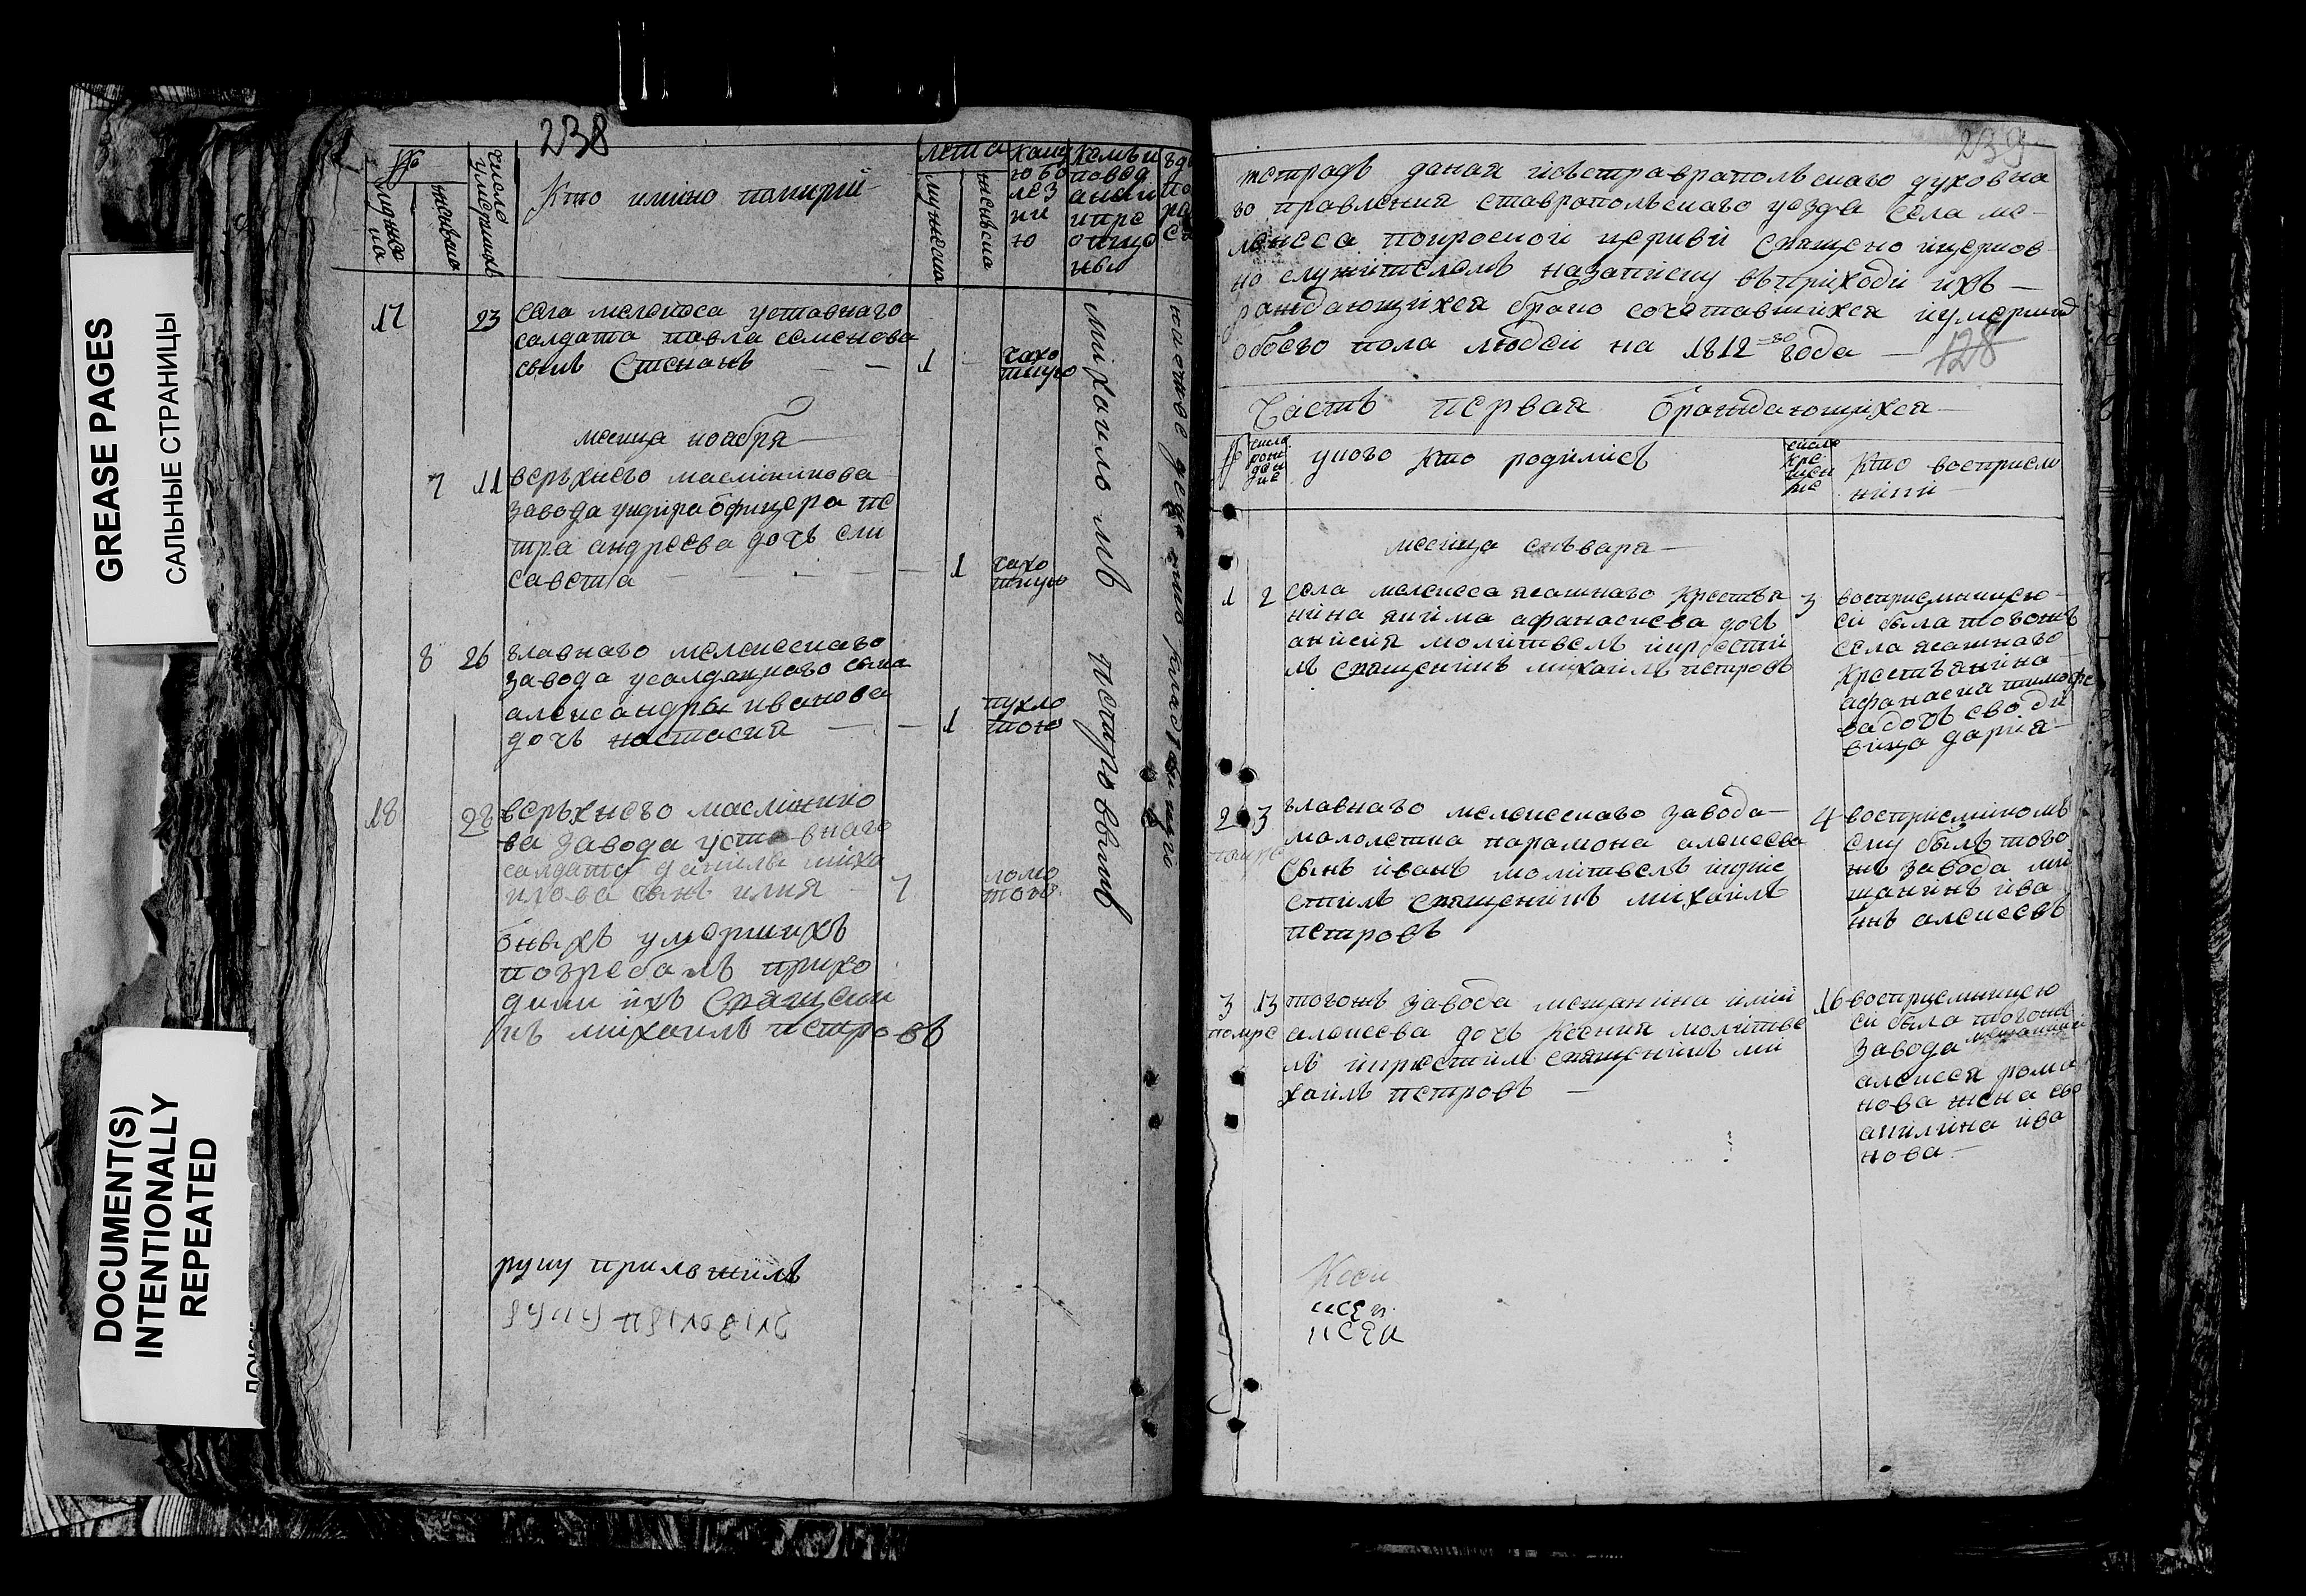 GREASE PAGES
САЛЬНЫЕ СТРАНИЦЫ
DOCUMENT(S)
INTENTIONALLY
REPEATED
238
№
числѡ умерших
Кто имяно помирли
лета
мужеска
женска
17 23 села мелекеса уставнаго
салдата павла семенова
сынъ Степанъ 1 чахо
ткую
месяца ноября
7 11 верьхнего маслиникова
завода ундирафицера пе
тра андреева дочь ели
савета 1 чахо
ткую
8 26 главнаго мелекескаго
завода
александры иванова
дочь настасия 1 пухло
тою
18 28 верьхнего маслинико
ва завода уставнаго
салдата данилы миха
илова сынъ илия 7 ломо
тою
оных умерших
погребалъ прихо
цки ихъ Священи
къ михаилъ петровъ
михаилъ петровъ
руку приложилъ
239
тетрадь даная исъ ставрапольскаго духовна
го правления ставропольскаго уезда села ме-
лекеса покроской церкви священо ицерков
но служителемъ назаписку въприходе ихъ
раждающихся брако сочетавшихся иумерших
обоего пола людей на 1812 го года
128
Часть первая ораждающихся
№
числа рождение
укого кто родились
числа крещение
Кто восприем
ники
месяца енъваря
1 2 села мелекеса ясашнаго крестья
нина якима афанасиева дочь
анисия молитвелъ икрести
лъ священикъ михаилъ петровъ
3 восприемницею
ей была тогожъ
села ясашнаго
крестьянина
афанасиа тимофе
ва дочь ево де
вица дария
2 3 главнаго мелекескаго завода
малолетка парамона алексева
сынъ иванъ молитвелъ икре
стилъ священикъ михаилъ
петровъ
4 восприемникомъ
ему былъ того
жъ завода ме
щанинъ ива
нъ алексевъ
3 13 тогожъ завода мещанина
помре алексева дочь Ксения молитве
лъ икрестил священикъ ми
хаилъ петровъ
16 восприемницею
ей была тогожъ
завода мещанина
алексея рома
нова жена ево
акилина ива
нова